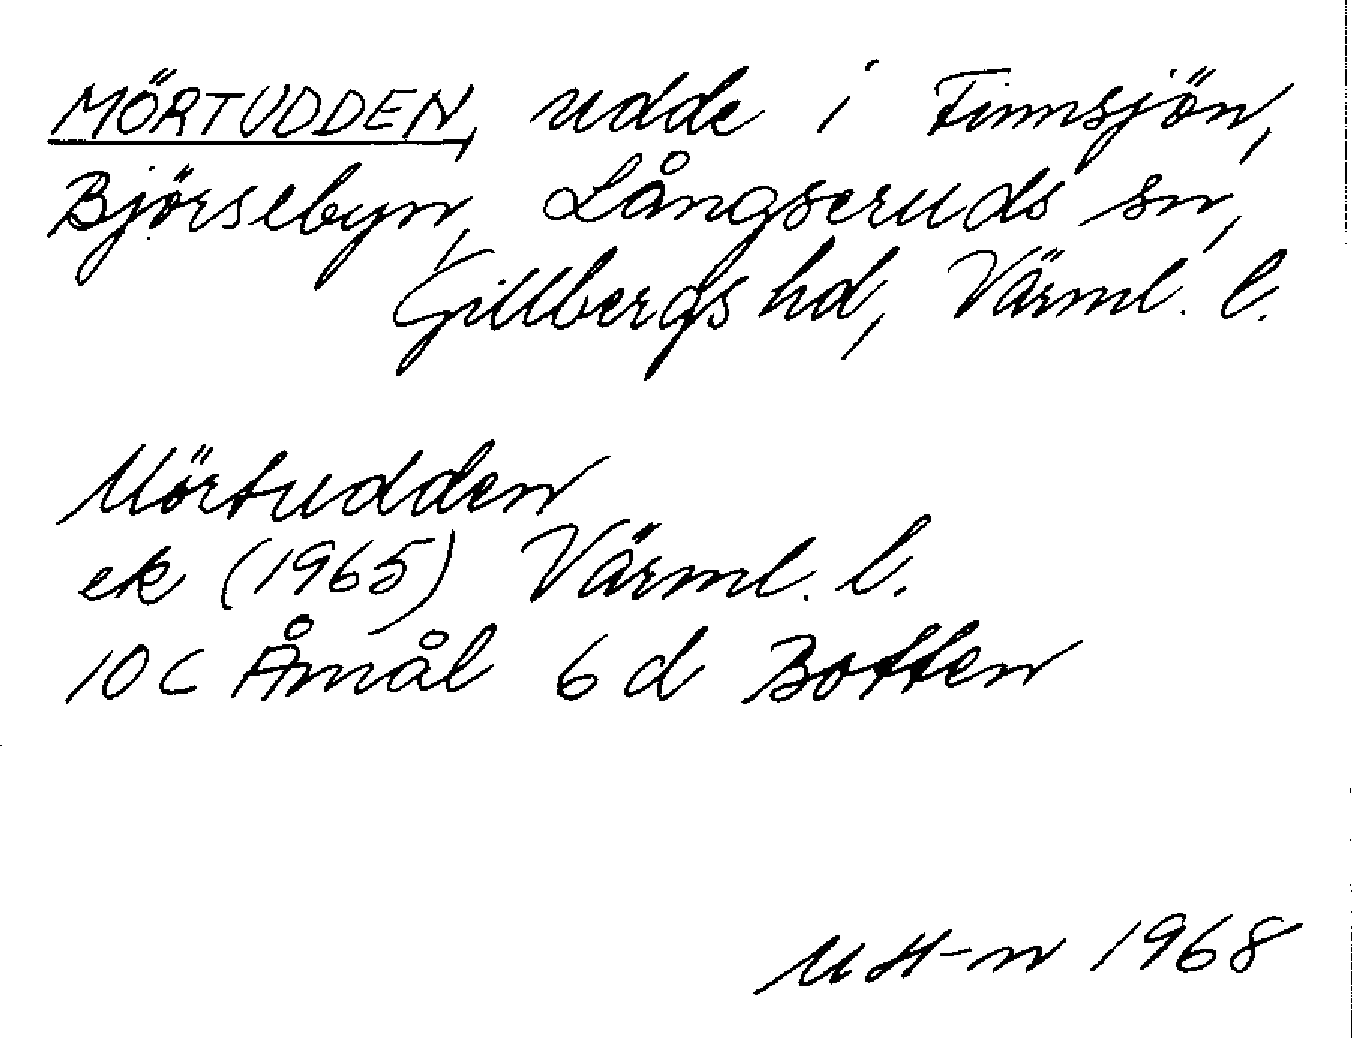 MÖRTUDDEN, udde i Finnsjön,
Björsebyn, Långseruds sn,
Gillbergs hd, Värml. l.
Mörtudden
ek (1965) Värml. l.
10 c Åmål 6 d Botten
M H-n 1968